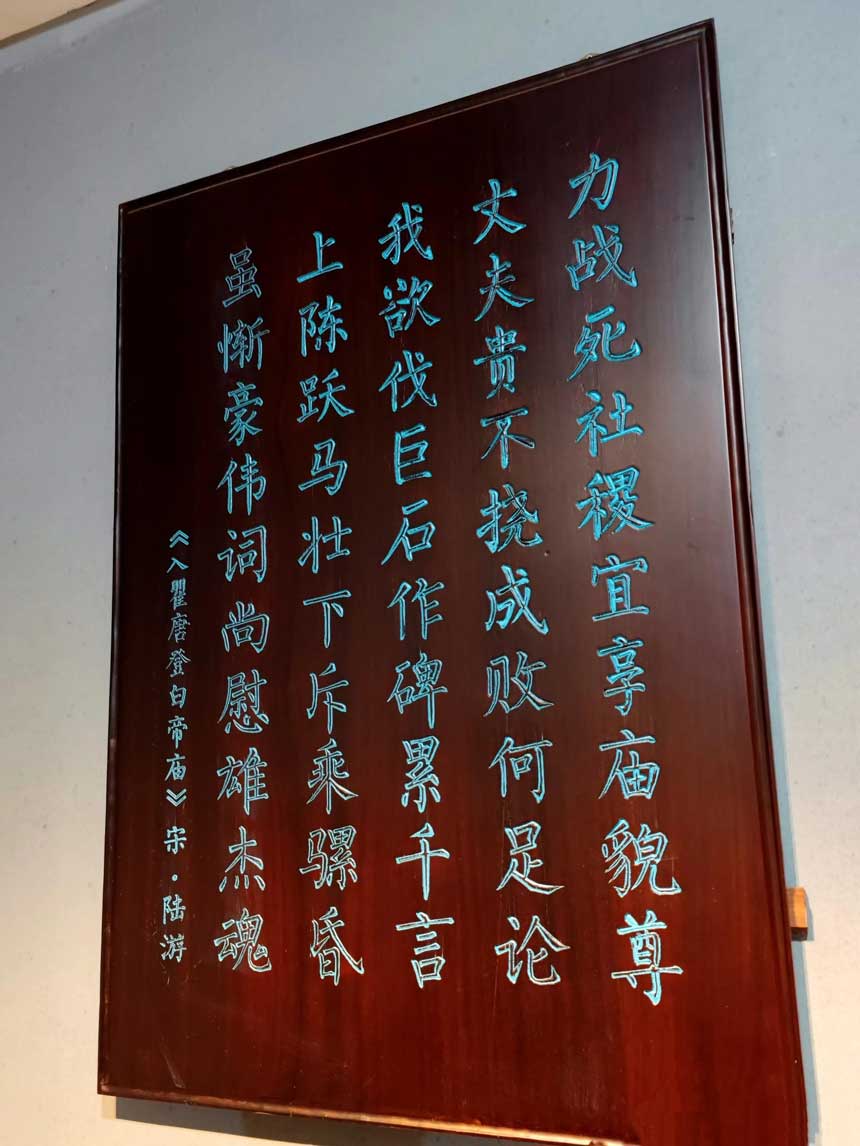 力战死社稷宜享庙貌尊
丈夫贵不挠成败何足论
我欲伐巨石作碑累千言
上陈跃马壮下斥乘骡昏
虽惭豪伟词尚慰雄杰魂
《入瞿唐登白帝庙》宋·陆游